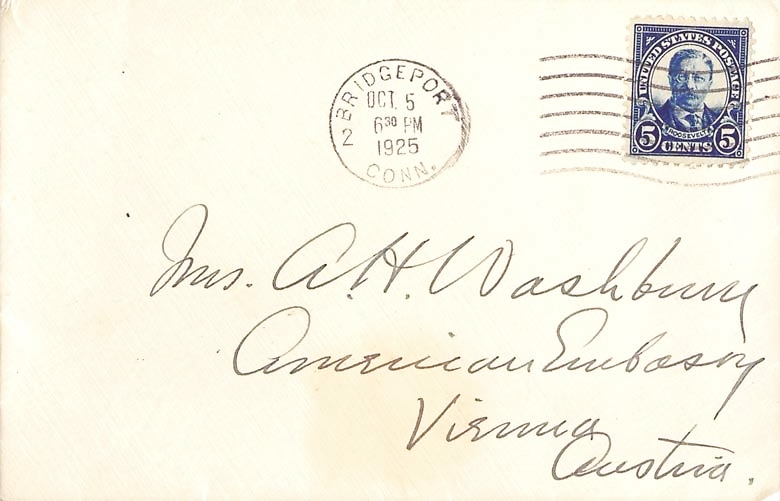 BRIDGEPORT
OCT. 5
6³⁰ PM
1925
2
CONN.
UNITED STATES POSTAGE
ROOSEVELT
5 CENTS 5
Mrs. A. H. Washburn
American Embassy
Vienna
Austria.